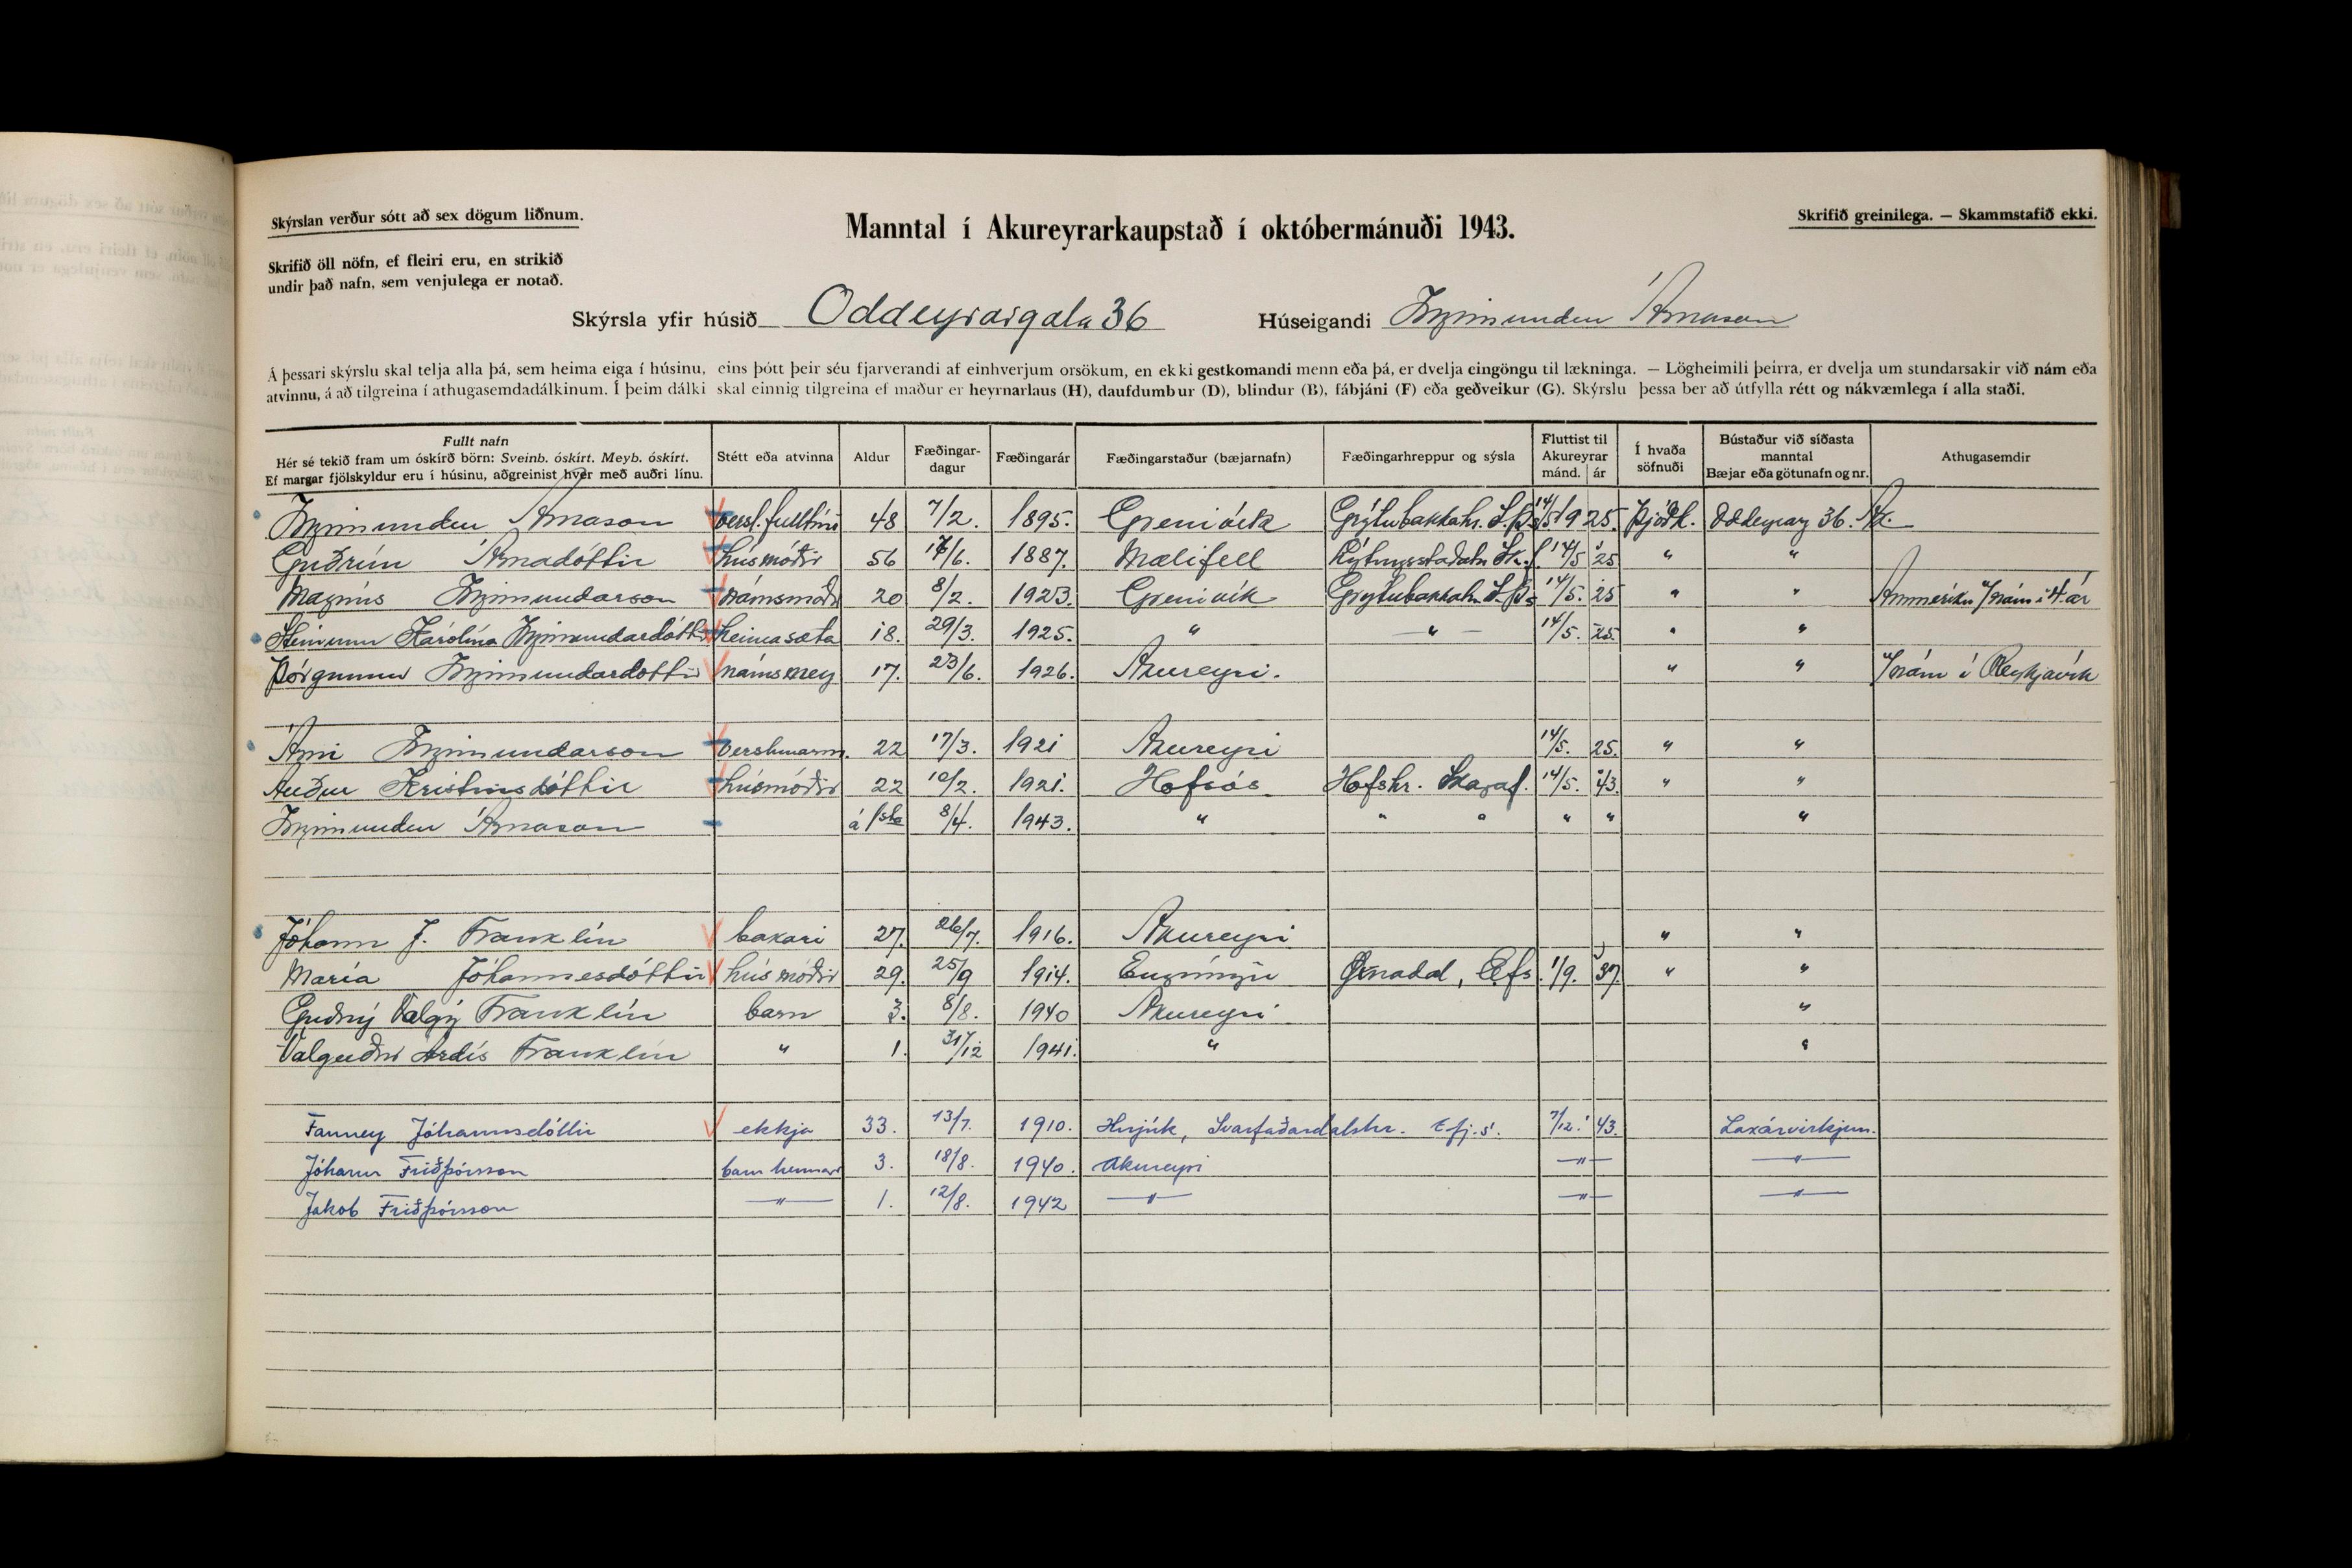 Skýrslan verður sótt að sex dögum liðnum.
Manntal í Akureyrarkaupstað í októbermánuði 1943.
Skrifið greinilega. — Skammstafið ekki.
Skrifið öll nöfn, ef fleiri eru, en strikið
undir það nafn, sem venjulega er notað.
Skýrsla yfir húsið Oddeyrargata 36 Húseigandi Ingimundur Árnason
Á þessari skýrslu skal telja alla þá, sem heima eiga í húsinu, eins þótt þeir séu fjarverandi af einhverjum orsökum, en ekki gestkomandi menn eða þá, er dvelja eingöngu til lækninga. — Lögheimili þeirra, er dvelja um stundarsakir við nám eða
atvinnu, á að tilgreina í athugasemdadálkinum. Í þeim dálki skal einnig tilgreina ef maður er heyrnarlaus (H), daufdumbur (D), blindur (B), fábjáni (F) eða geðveikur (G). Skýrslu þessa ber að útfylla rétt og nákvæmlega í alla staði.
Fullt nafn
Hér sé tekið fram um óskírð börn: Sveinb. óskírt. Meyb. óskírt.
Ef margar fjölskyldur eru í húsinu, aðgreinist hver með auðri línu.
Stétt eða atvinna
Aldur
Fæðingar-
dagur
Fæðingarár
Fæðingarstaður (bæjarnafn)
Fæðingarhreppur og sýsla
Fluttist til
Akureyrar
mánd. ár
Í hvaða
söfnuði
Bústaður við síðasta
manntal
Bæjar eða götunafn og nr.
Athugasemdir
Ingimundur Árnason versl.fulltrúi 48 7/2. 1895. Grenivík Grýtubakkahr. S.Þ. 14/5 1925. Þjóðk. Oddeyrarg 36. Ak.
Guðrún Árnadóttir húsmóðir 56 17/6. 1887. Mælifell Lýtingsstaðahr. Sk.f. 14/5 25 " "
Magnús Ingimundarson námsmaðr 20 8/2. 1923. Grenivík Grýtubakkahr. S.Þ. 14/5. 25 " " Ammeríku v/nám í 4. ár
Steinunn Karólína Ingimundardóttir heimasæta 18. 29/3. 1925. " — " — 14/5. 25. " "
Þórgunnur Ingimundardóttir námsmey 17. 23/6. 1926. Akureyri. " " v/nám í Reykjavík
Árni Ingimundarson verslunarm. 22 17/3. 1921 Akureyri 14/5. 25. " "
Auður Kristinsdóttir húsmóðir 22 10/2. 1921. Hofsós Hofshr. Skagaf. 14/5. 43. " "
Ingimundur Árnason á 1sta 8/4. 1943. " " " " " "
Jóhann J. Franklín bakari 27. 26/7. 1916. Akureyri " "
María Jóhannesdóttir húsmóðir 29. 25/9 1914. Engimýri Öxnadal, Eyfs. 1/9. 37. " "
Guðný Valgý Franklín barn 3. 8/8. 1940 Akureyri "
Valguðni Ardís Franklín " 1. 31/12 1941. " "
Fanney Jóhannsdóttir ekkja 33. 13/7. 1910. Hnjúk, Svarfaðardalshr. Efj.s. 7/12. 43. Laxárvirkjun.
Jóhann Friðþórsson barn hennar 3. 18/8. 1940. Akureyri — " — — " —
Jakob Friðþórsson — " — 1. 12/8. 1942 — " — — " — — " —